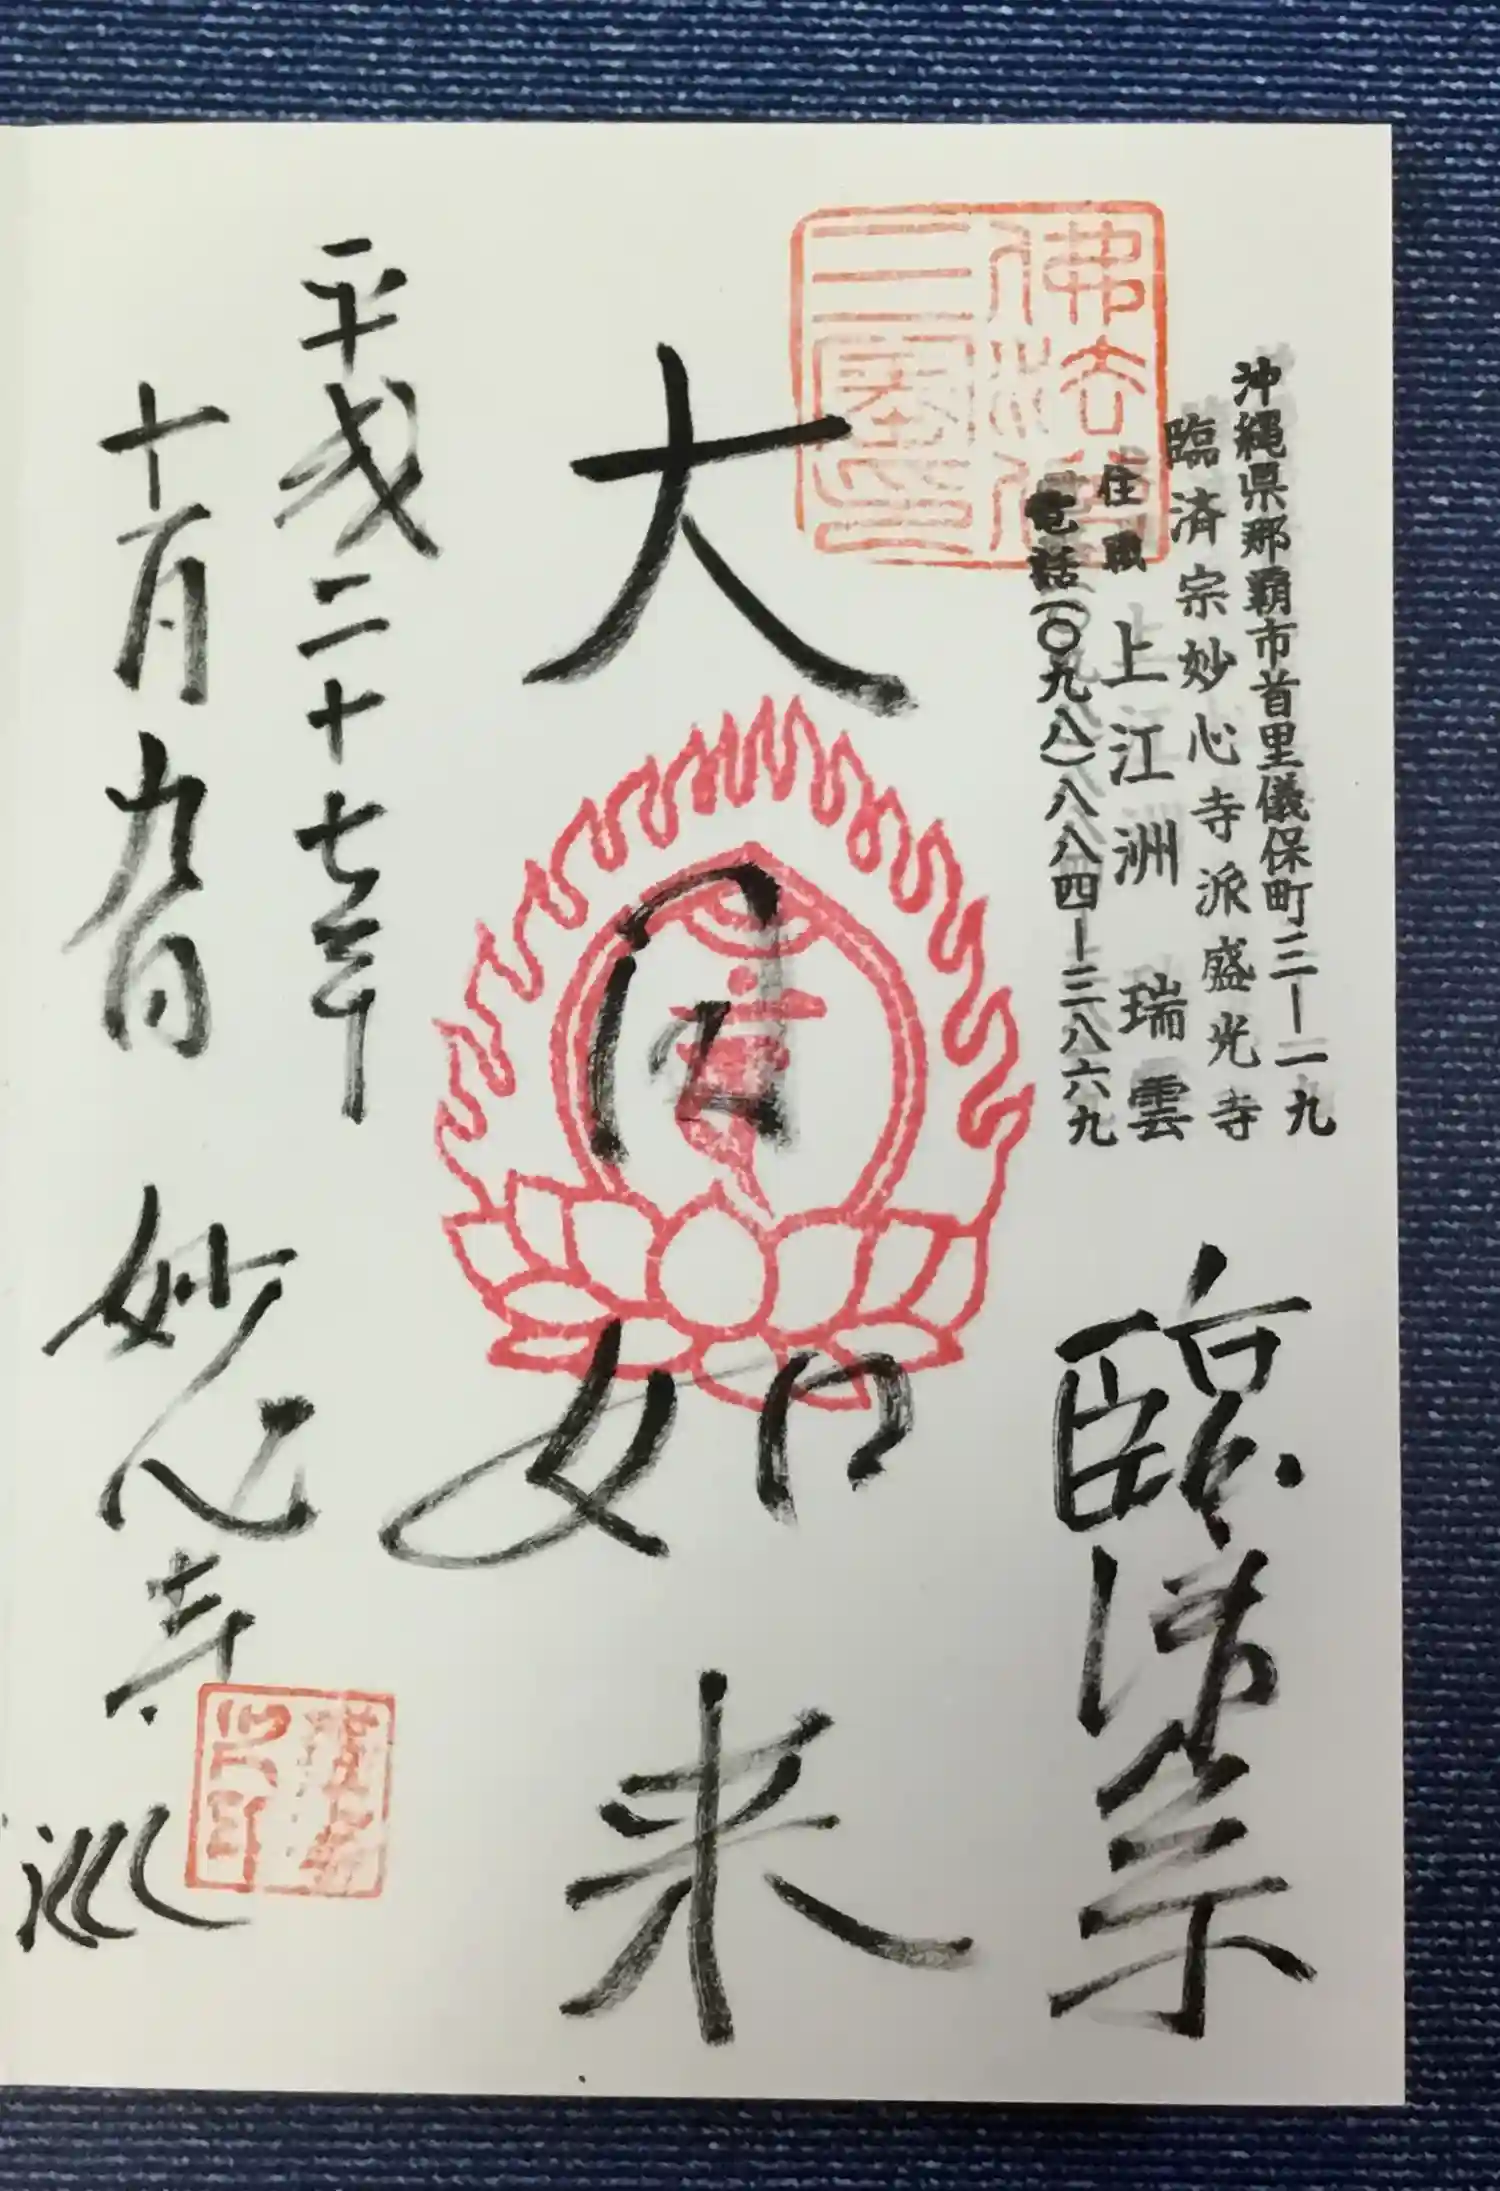 沖縄県那覇市首里儀保町三ー一九
臨済宗妙心寺派盛光寺
住職 上江洲 瑞雲
電話(〇九八)八八四ー三八六九
臨済宗
佛法僧
三寶印
大日如来
平成二十七年
十一月九日 妙心寺 巡